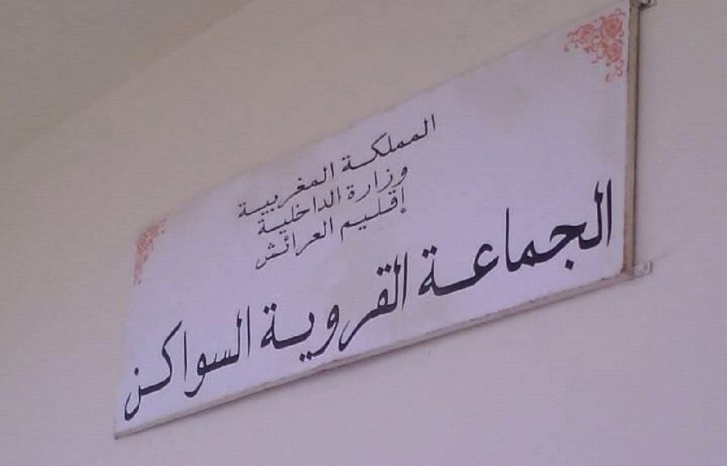 المملكة المغربية
وزارة الداخلية
إقليم العرائش
الجماعة القروية السواكن